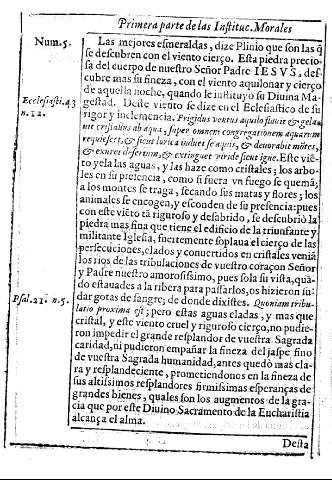 Primera parte de las Instituc. Morales
Num. 5.
Las mejores esmeraldas, dize Plinio que son las q̃
se descubren con el viento cierço. Esta piedra precio-
sa del cuerpo de nuestro Señor Padre IESVS, des-
cubre mas su fineza, con el viento aquilonar y cierço
de aquella noche, quando le instituyò su Divina Ma-
gestad. Deste viento se dize en el Eclesiastico de su
Ecclesiasti. 43
n. 22.
rigor y inclemencia. Frigidus ventus aquilo flavit & gela-
uit cristallus ab aqua, super omnem congregationem aquarum
requiescet, & sicut lorica induet se aquis, & devorabit mõtes,
& exuret desertum, & extinguet viride sicut igne. Este viẽ-
to yela las aguas, y las haze como cristales; los arbo-
les en su presencia, como si fuera vn fuego se quemã;
a los montes se traga, secando sus matas y flores; los
animales se encogen, y esconden de su presencia: pues
con este viẽto tã riguroso y desabrido, se descubriò la
piedra mas fina que tiene el edificio de la triunfante y
militante Iglesia, fuertemente soplaua el cierço de las
persecuciones, elados y conuertidos en cristales veniã
los rios de las tribulaciones de vuestro coraçon Señor
y Padre nuestro amorosissimo, pues sola su vista, quã-
do estauades a la ribera para passarlos, os hizieron su-
Psal. 21. n. 5.
dar gotas de sangre; de donde dixistes. Quoniam tribu-
latio proxima est; pero estas aguas eladas, y mas que
cristal, y este viento cruel y riguroso cierço, no pudie-
ron impedir el grande resplandor de vuestra Sagrada
caridad, ni pudieron empañar la fineza del jaspe fino
de vuestra Sagrada humanidad, antes quedò mas cla-
ra y resplandeciente, prometiendonos en la fineza de
sus altissimos resplandores firmissimas esperanças de
grandes bienes, quales son los augmentos de la gra-
cia que por este Divino Sacramento de la Eucharistia
alcança el alma.
Desta